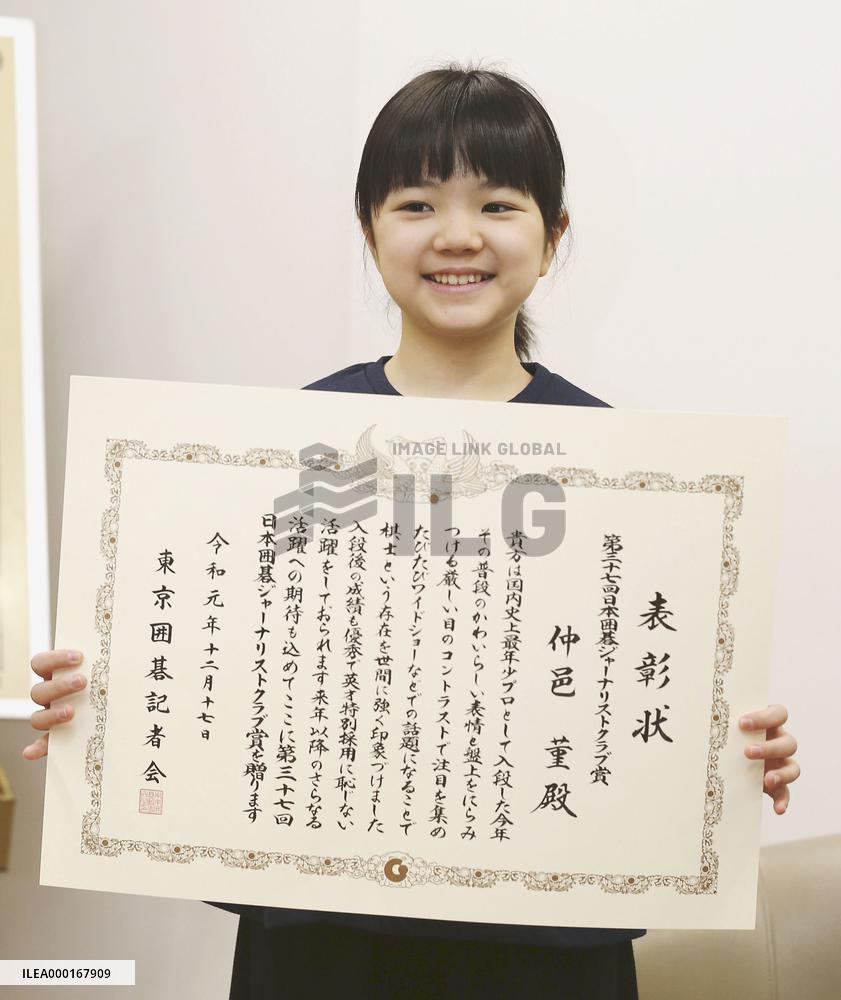 表彰状
第三十七回日本囲碁ジャーナリストクラブ賞
仲邑 菫 殿
貴方は国内史上最年少プロとして入段した今年
その普段のかわいらしい表情と盤上をにらみ
つける厳しい目のコントラストで注目を集め
たびたびワイドショーなどでの話題になることで
棋士という存在を世間に強く印象づけました
入段後の成績も優秀で英才特別採用に恥じない
活躍をしておられます来年以降のさらなる
活躍への期待も込めてここに第三十七回
日本囲碁ジャーナリストクラブ賞を贈ります
令和元年十二月十七日
東京囲碁記者会
IMAGE LINK GLOBAL
ILG
ILEA000167909